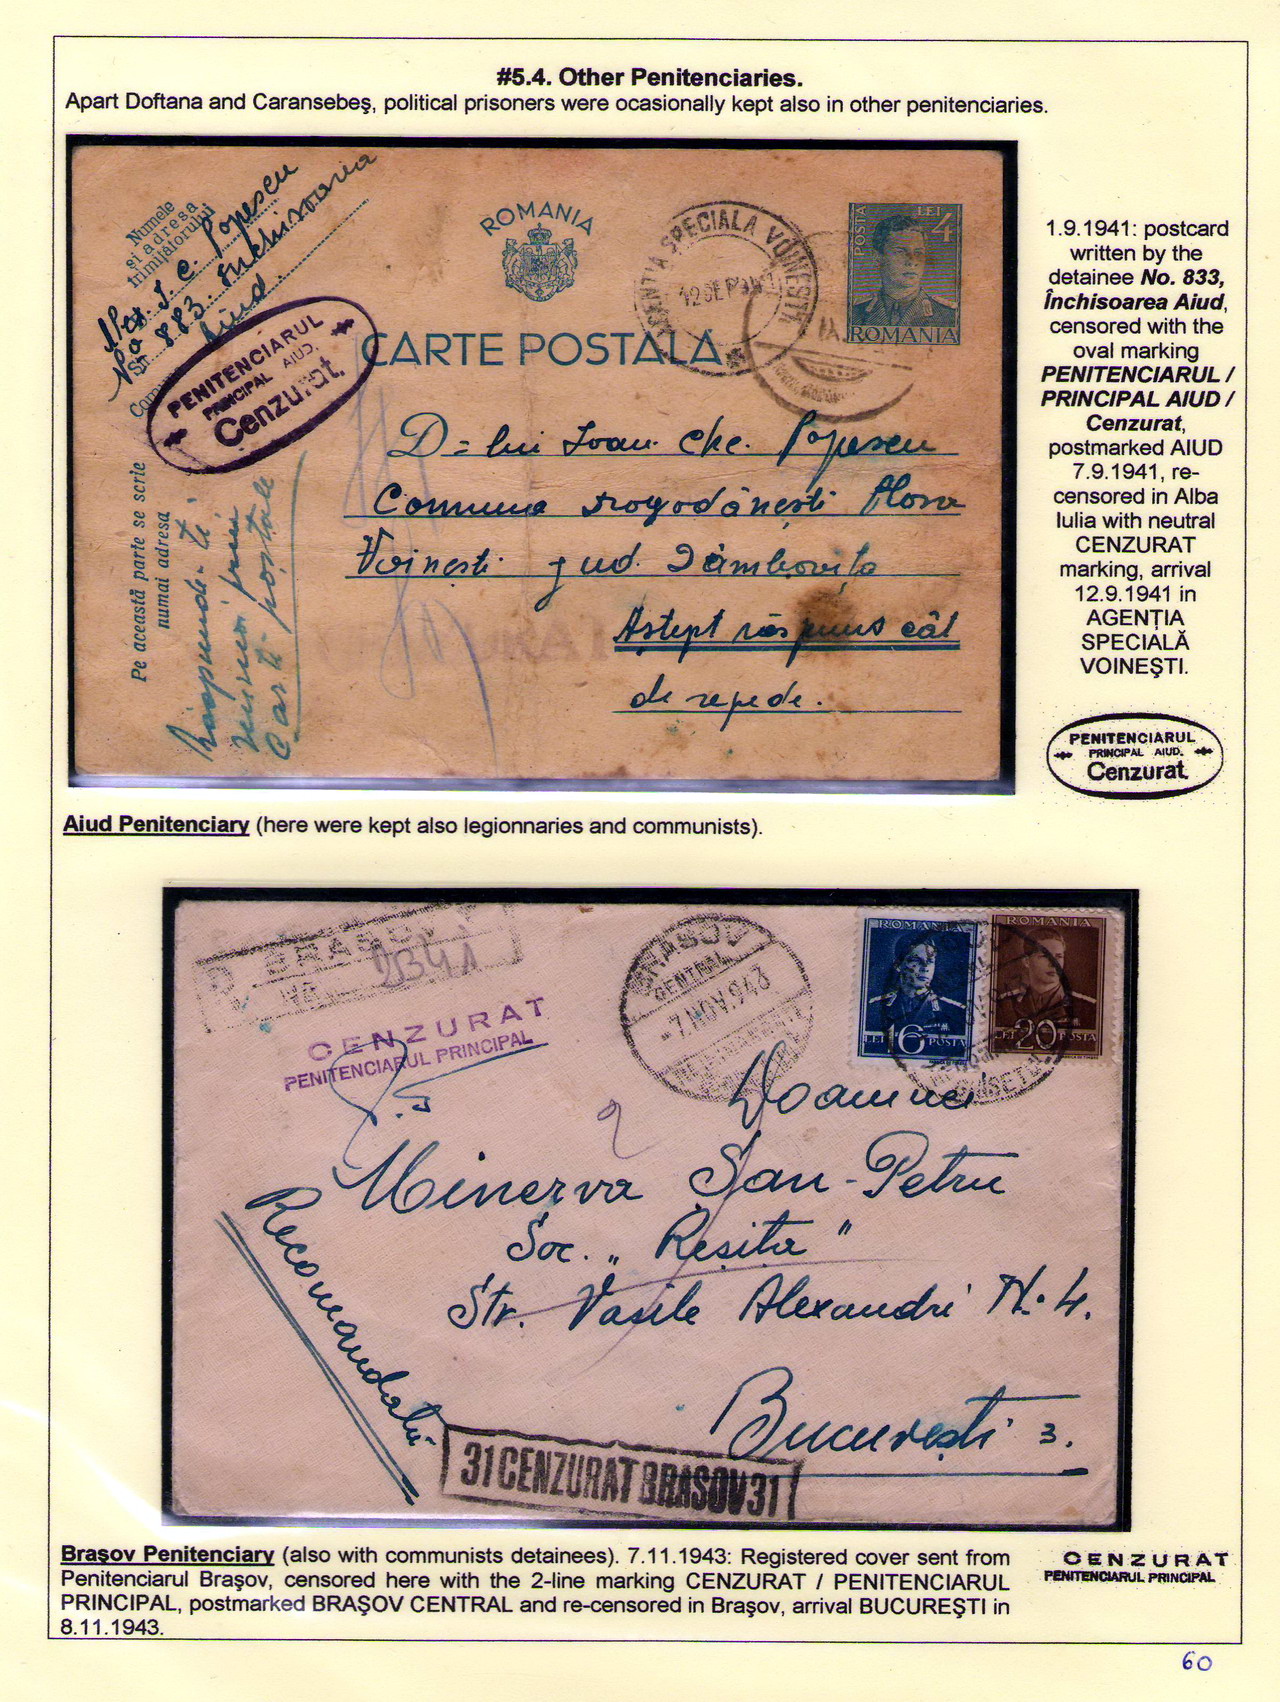 #5.4. Other Penitenciaries.
Apart Doftana and Caransebeş, political prisoners were ocasionally kept also in other penitenciaries.
Numele
şi adresa
trimiţătorului
I. C. Popescu
No 883. Închisoarea
Aiud
Str.
PENITENCIARUL
PRINCIPAL AIUD.
Cenzurat
ROMANIA
CARTE POSTALA
AGENTIA SPECIALA VOINESTI
12 SEP 941
POSTA LEI 4
ROMANIA
D=lui Ioan. Che. Popescu
Comuna Dragodăneşti Mosa
Voineşti jud. Dâmboviţa
Aştept răspuns cât
de repede.
Pe această parte se scrie
numai adresa
Răspunde-ţi
numai prin
Carţi poştale
1.9.1941: postcard
written by the
detainee No. 833,
Închisoarea Aiud,
censored with the
oval marking
PENITENCIARUL /
PRINCIPAL AIUD /
Cenzurat,
postmarked AIUD
7.9.1941, re-
censored in Alba
Iulia with neutral
CENZURAT
marking, arrival
12.9.1941 in
AGENŢIA
SPECIALĂ
VOINEŞTI.
PENITENCIARUL
PRINCIPAL AIUD.
Cenzurat
Aiud Penitenciary (here were kept also legionnaries and communists).
R BRASOV 1
No 2341
CENZURAT
PENITENCIARUL PRINCIPAL
BRASOV
CENTRAL
-7.NOV.943
ROMANIA
LEI 16 POSTA
ROMANIA
LEI 20 POSTA
Doamnei
Minerva San-Petru
Soc. „Reşita"
Str. Vasile Alexandri No. 4.
Bucureşti 3.
Recomandată
31 CENZURAT BRASOV 31
Braşov Penitenciary (also with communists detainees). 7.11.1943: Registered cover sent from
Penitenciarul Braşov, censored here with the 2-line marking CENZURAT / PENITENCIARUL
PRINCIPAL, postmarked BRAŞOV CENTRAL and re-censored in Braşov, arrival BUCUREŞTI in
8.11.1943.
CENZURAT
PENITENCIARUL PRINCIPAL
60